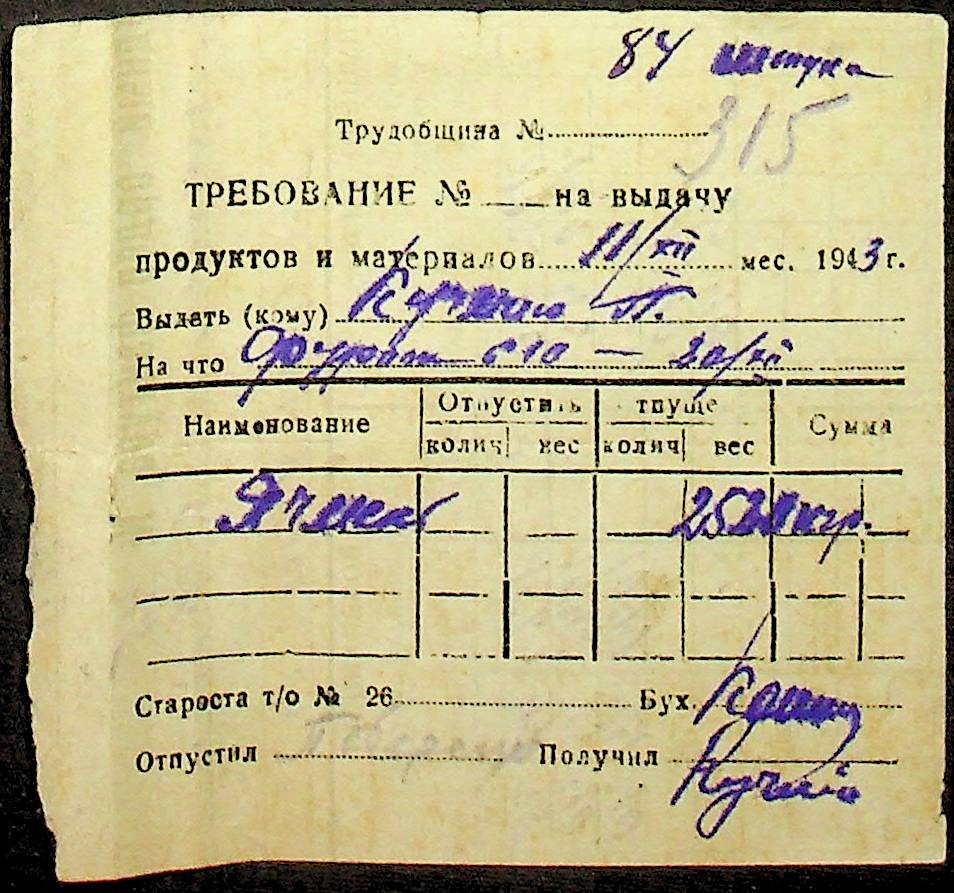 84 штука
Трудобщина № 315
ТРЕБОВАНИЕ № на выдачу
продуктов и материалов 11/XII мес. 1943 г.
Выдать (кому) П.
На что Фураж с 10 — 20/XII
Наименование Отпустить тпуще Сумма
колич вес колич вес
Ячмень 25 кгр.
Староста т/о № 26 Бух.
Отпустил Получил